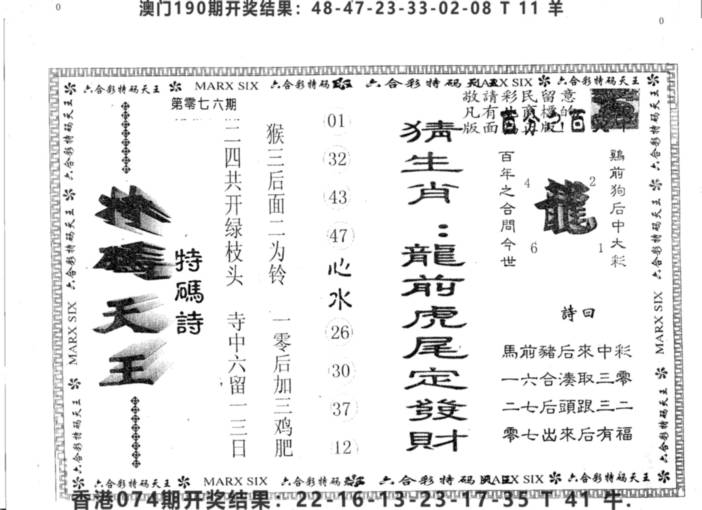 0
澳门190期开奖结果：48-47-23-33-02-08 T 11 羊
0
六合彩特码天王 MARX SIX 六合彩特码 六合彩特码天王 MARX SIX 六合彩特码天王
第零七六期
特碼天王
特碼詩
二四共开绿枝头
寺中六留一三日
猴三后面二为铃
一零后加三鸡肥
01
32
43
47
心水
26
30
37
12
猜生肖：龍前虎尾定發財
敬請彩民留意
凡有
版面
百年之合問今世
4 2
龍
6 1
鷄前狗后中大彩
詩曰
馬前豬后來中彩
一六合湊取三零
二七后頭跟三二
零七出來后有福
六合彩特码天王 MARX SIX
六合彩特码天王 MARX SIX
六合彩特码天王 MARX SIX 六合彩特码 六合彩特码 MARX SIX 六合彩特码天王
香港074期开奖结果：22-16-13-23-17-35 T 41 牛.